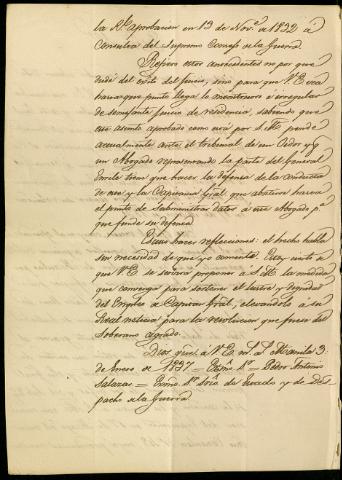 la Rl. aprobacion en 13 de Nove. de 1832 á
Consulta del Supremo Consejo de la Guerra.
Refiero estos antecedentes no por que
dude del exito del juicio, sino para que V.E. vea
hasta que punto llega lo monstruoso é irregular
de semejante juicio de residencia, sabiendo que
ese asunto aprobado como está por S.M. pende
actualmente ante el tribunal de un Oidor y q.
un Abogado representando la parte del General
Enrile tiene que hacer la defensa de la conducta
de este y la Capitania Gral. que abatirse hasta
el punto de subministrar datos á ese Abogado pa.
que funde su defensa
Escuso hacer reflecciones: el hecho habla
sin necesidad de que yo comente. Estoy cierto á
que V.E. se servirá proponer á S.M. la medida
que convenga para sostener el lustre y dignidad
del Empleo de Capitan Gral., elevandolo á su
Real noticia para la resolucion que fuere del
Soberano agrado.
Dios gue. á V.E. m. a. Manila 3
de Enero de 1837 = Exmo. Sr. = Pedro Antonio
Salazar = Exmo. Sr. Srio. de Estado y de Des
pacho de la Guerra.